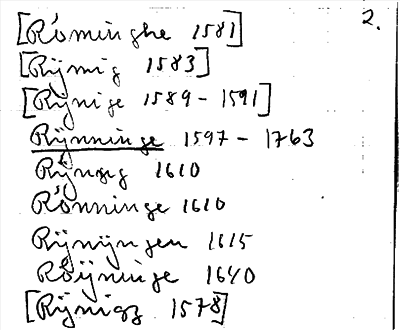 2.
[Röminghe 1581]
[Rÿnig 1583]
[Rÿnige 1589 - 1591]
Rÿnninge 1597 - 1763
1610
Rönninge 1610
Rÿnÿngen 1615
Röijninge 1640
[Rÿnigz 1578]